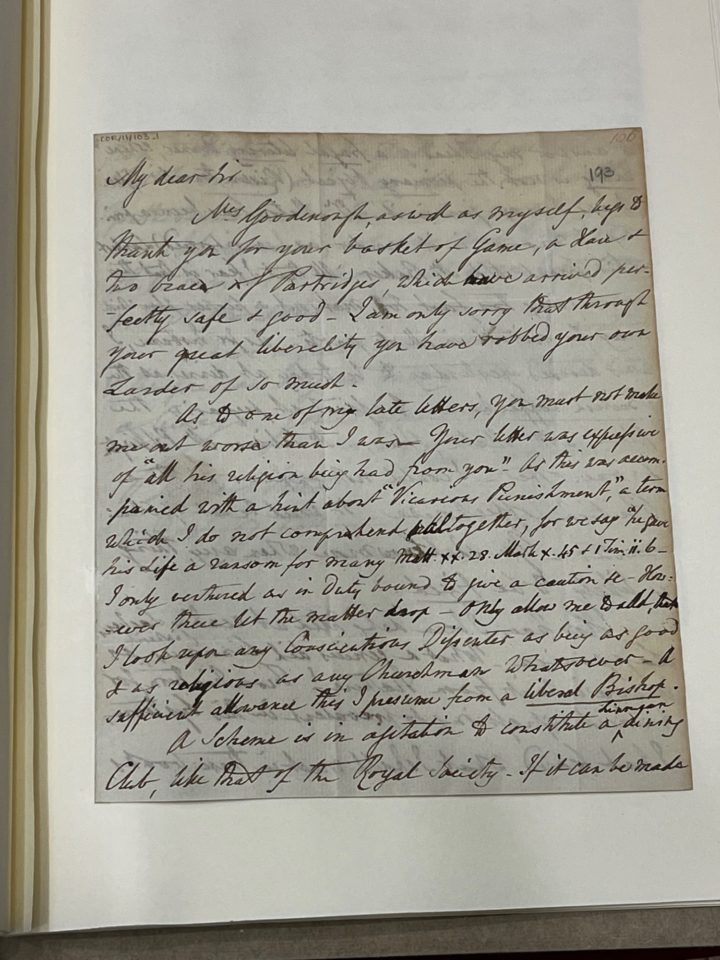 COR/11/103.1
106
193
My dear Sir
Mrs Goodenough, as well as myself, begs to
thank you for your basket of Game, a Hare &
two brace of Partridges, which have arrived per-
-fectly safe & good - I am only sorry that through
your great liberality you have robbed your own
Larder of so much.
As to one of my late letters, you must not make
me out worse than I was - Your letter was expressive
of "all his religion being had from you". As this was accom-
-panied with a hint about "Vicarious Punishment," a term
which I do not comprehend altogether, for we say "he gave
his Life a ransom for many Matt. xx. 28. Mark x. 45 & 1 Tim. ii. 6 -
I only ventured as in Duty bound to give a caution &c - How:
-ever there let the matter drop - Only allow me to add, that
I look upon any Conscientious Dissenter as being as good
& as religious as any Churchman Whatsoever - A
sufficient allowance this I presume from a liberal Bishop.
A Scheme is in agitation to constitute a Linnæan dining
Club, like that of the Royal Society - If it can be made